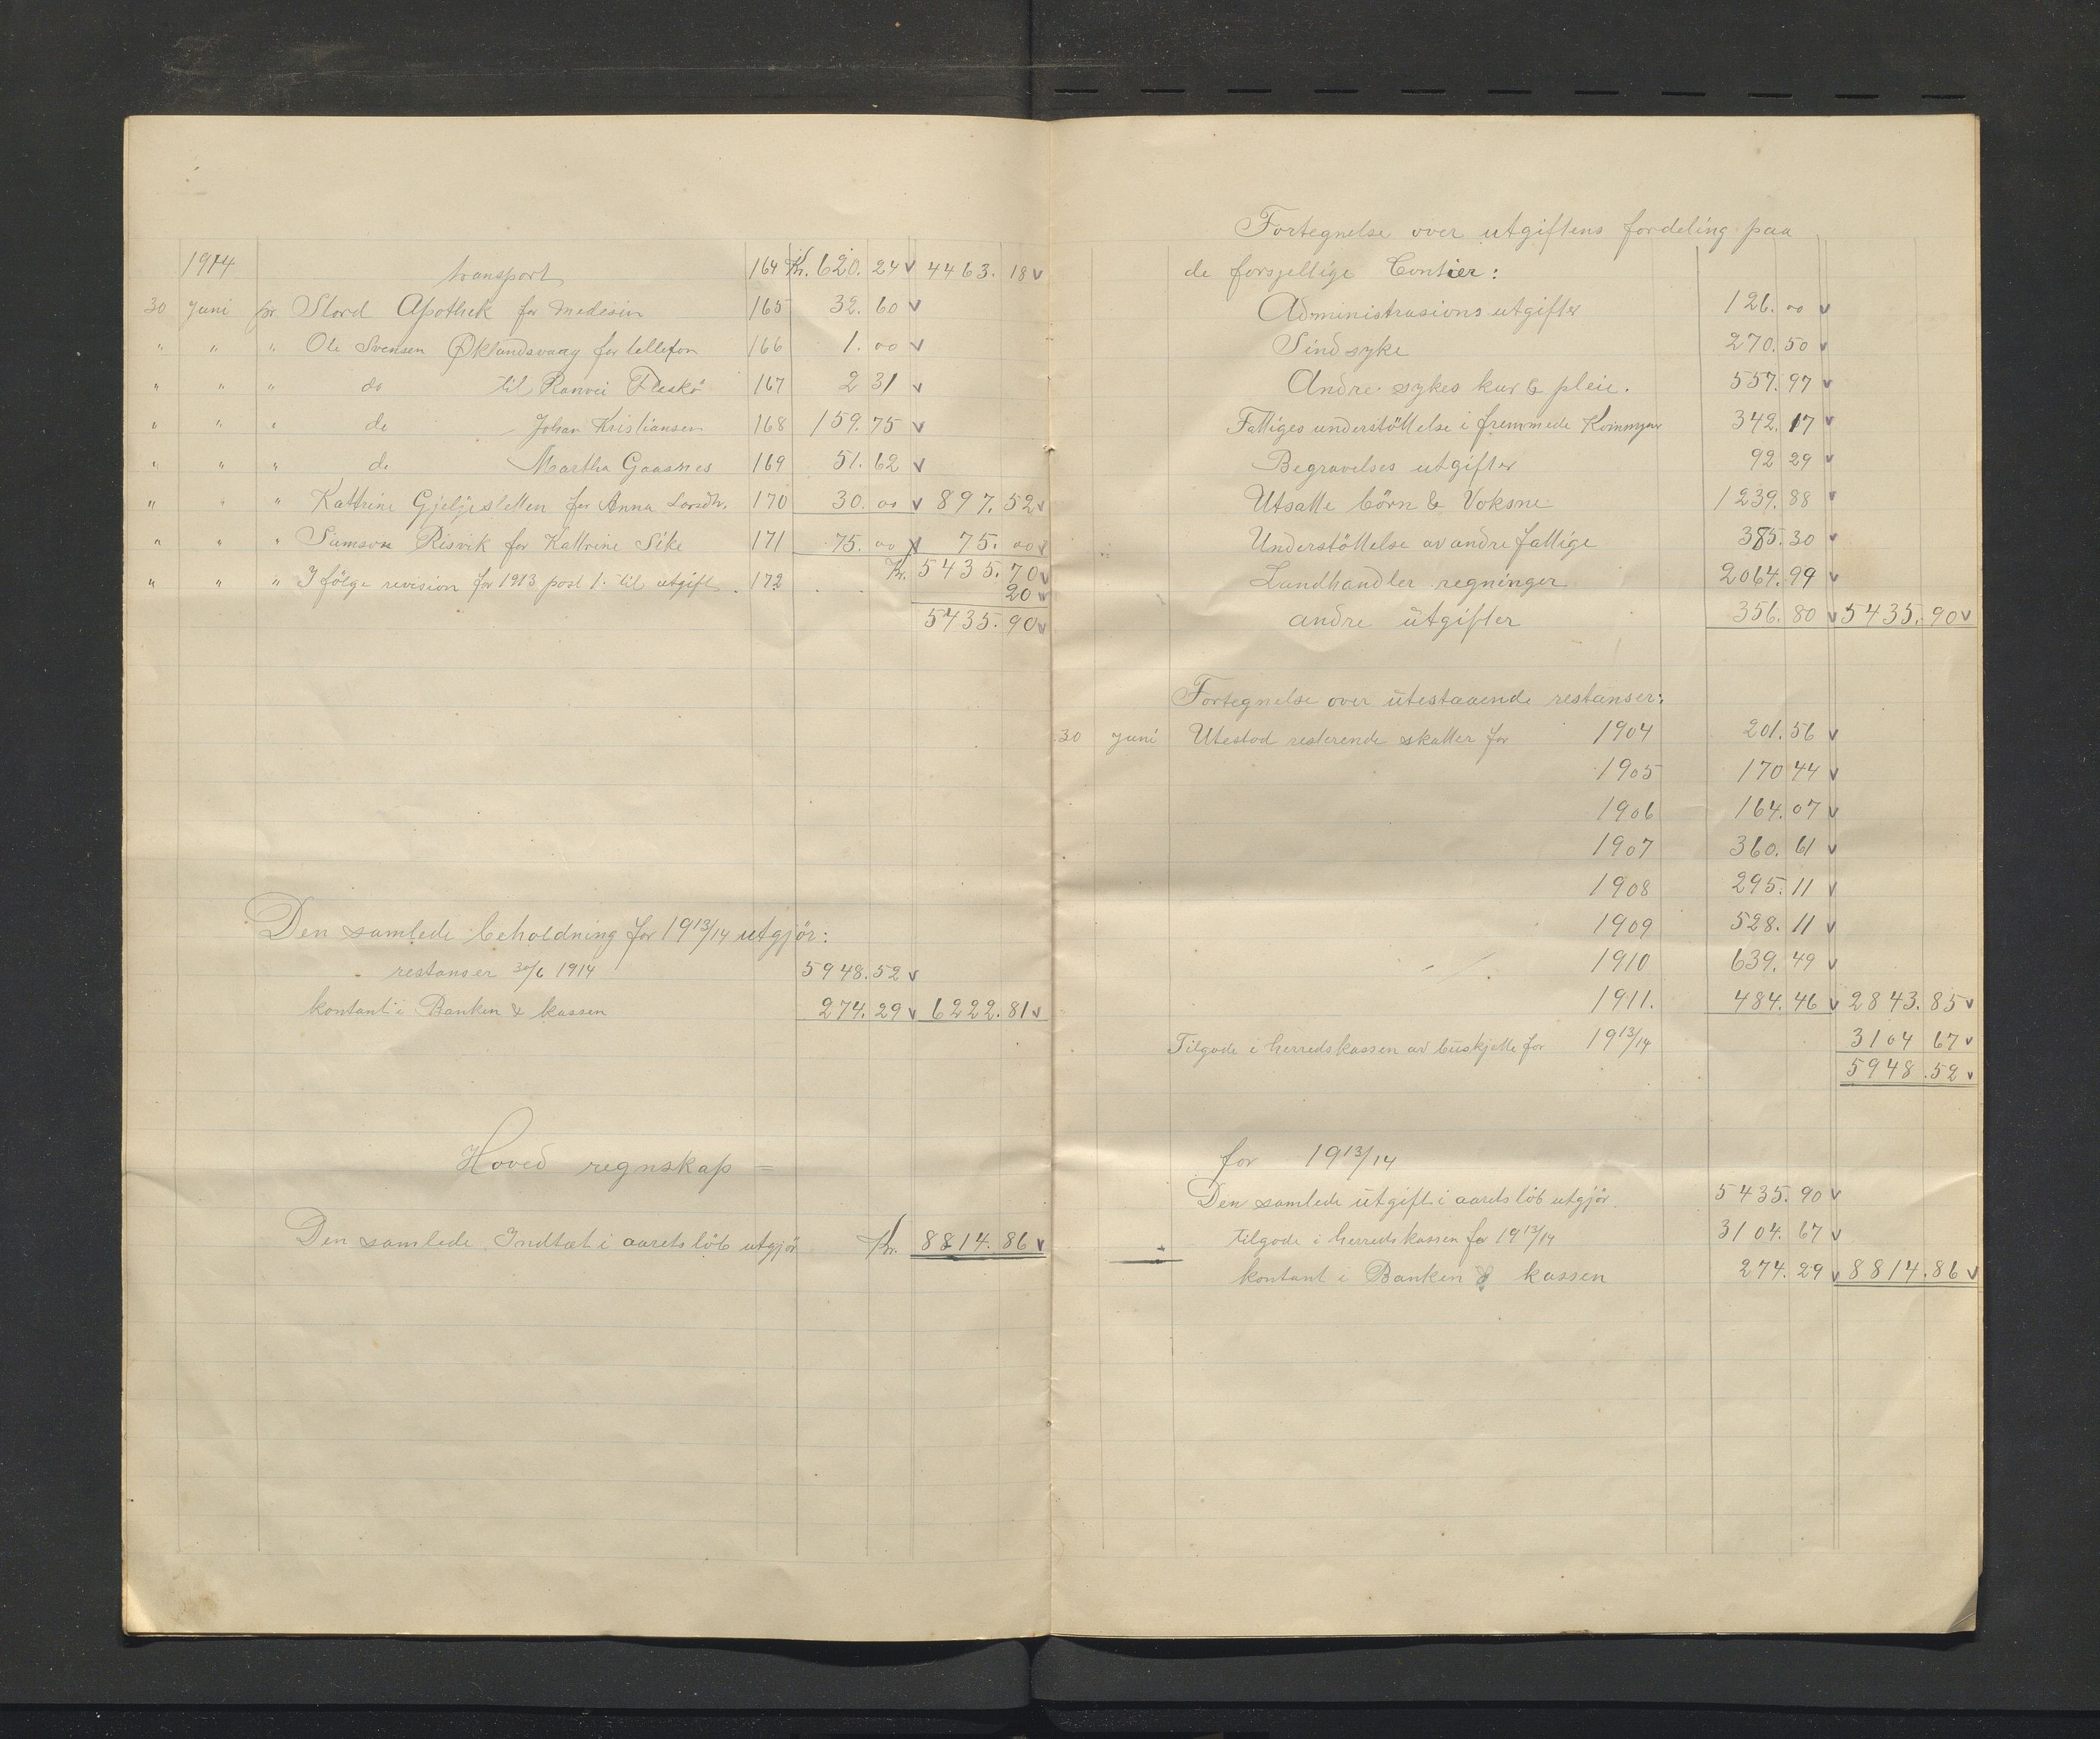 1914 transport 164 Kr. 620. 24 v 4463. 18 v
30 Juni pr. Stord Apothek for Medesin 165 32. 60 v
" " " Ole Svensen Øklandsvaag for tellefon 166 1. 00 v
" " " do til Ranvei Fleskö 167 2 31 v
" " " do - Johan Kristiansen 168 159. 75 v
" " " do Martha Gaasnes 169 51. 62 v
" " " Kattrine Gjeljesletten for Anna Larsdtr. 170 30. 00 v 897. 52 v
" " " Samson Risvik for Kattrine Sike 171 75. 00 v 75. 00 v
Kr. 5435. 70 v
" " " I fölge revision for 1913 post 1. til utgift. 172 20 v
5435. 90 v
Den samlede beholdning for 1913/14 utgjör:
restanser 30/6 1914 5948. 52 v
kontant i Banken & kassen 274. 29 v 6222. 81 v
Hoved regnskap =
Den samlede Indtæt i aarets löb utgjör Kr. 8814. 86 v
Fortegnelse over utgiftens fordeling paa
de forsjellige Contier:
Administrasions utgifter 126. 00 v
Sindsyke 270. 50 v
Andre sykes kur & pleie. 557. 97 v
Fattiges understöttelse i fremmede Kommyner 342. 17 v
Begravelses utgifter 92 29 v
Utsatte börn & Voksne 1239. 88 v
Understöttelse av andre fattige 385. 30 v
Landhandler regninger 2064. 99 v
andre utgifter 356. 80 v 5435. 90 v
Fortegnelse over utestaaende restanser:
30 Juni Utestod resterende skatter for 1904 201. 56 v
1905 170 44 v
1906 164. 07 v
1907 360. 61 v
1908 295. 11 v
1909 528. 11 v
1910 639. 49 v
1911. 484. 46 v 2843. 85 v
Tilgode i herredskassen av buskjette for 1913/14 3104 67 v
5948. 52 v
for 1913/14
Den samlede utgift i aarets löb utgjör. 5435. 90 v
tilgode i herredskassen for 1913/14 3104. 67 v
kontant i Banken & kassen 274. 29 v 8814. 86 v